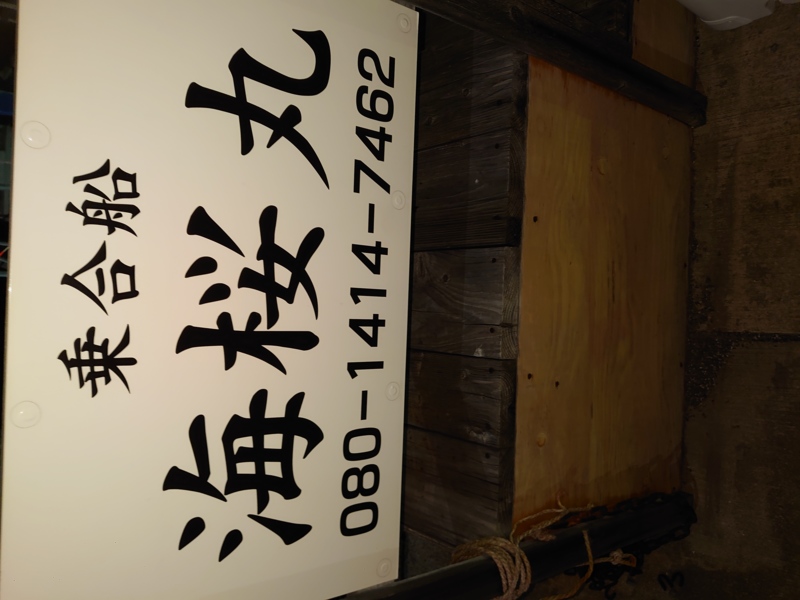 乗合船
海桜丸
080-1414-7462